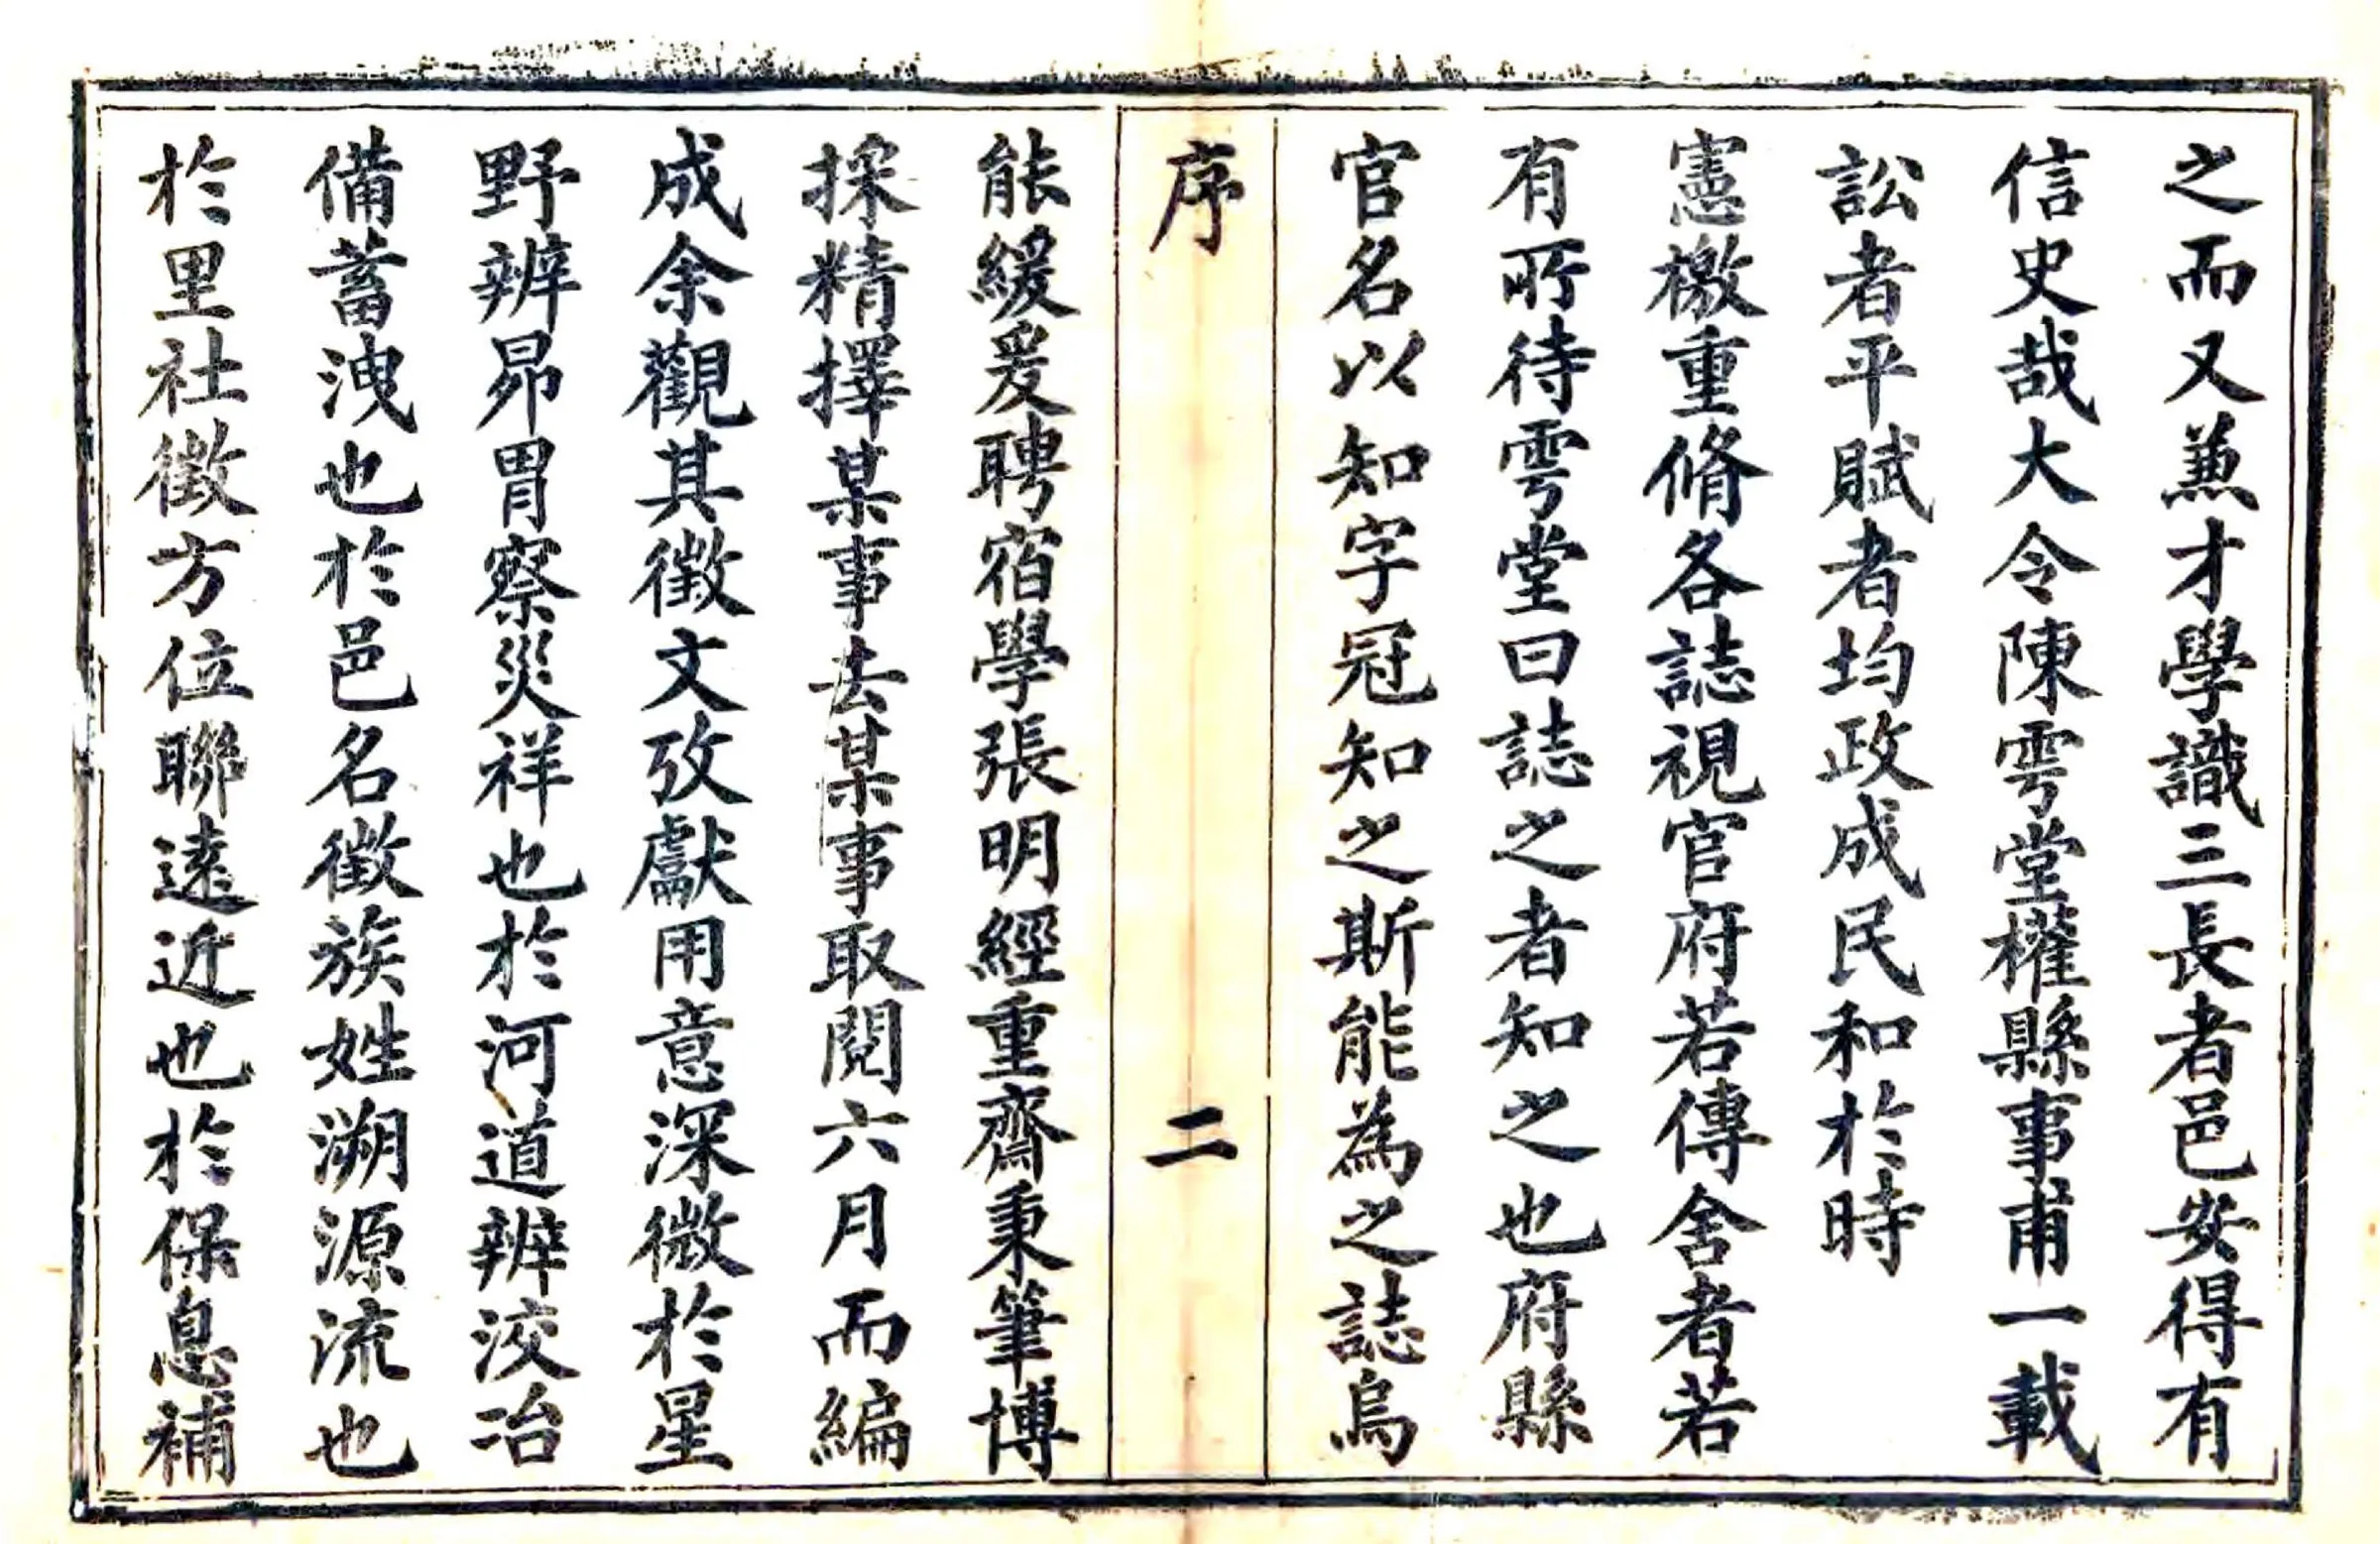 之而又兼才學識三長者邑安得有
信史哉大令陳雯堂權縣事甫一載
訟者平賦者均政成民和於時
憲檄重脩各誌視官府若傳舍者若
有所待雯堂曰誌之者知之也府縣
官名以知字冠知之斯能為之誌烏
序 二
能緩爰聘宿學張明經重齋秉筆博
採精擇某事去某事取閱六月而編
成余觀其徵文攷獻用意深微於星
野辨昴胃察災祥也於河道辨洨冶
備蓄洩也於邑名徵族姓溯源流也
於里社徵方位聯遠近也於保息補